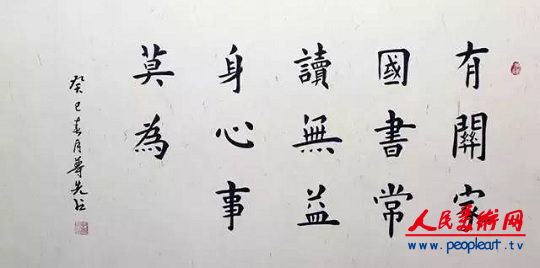 有關家
國書常
讀無益
身心事
莫為
癸巳春月尊先
人民美术网
www.peopleart.tv